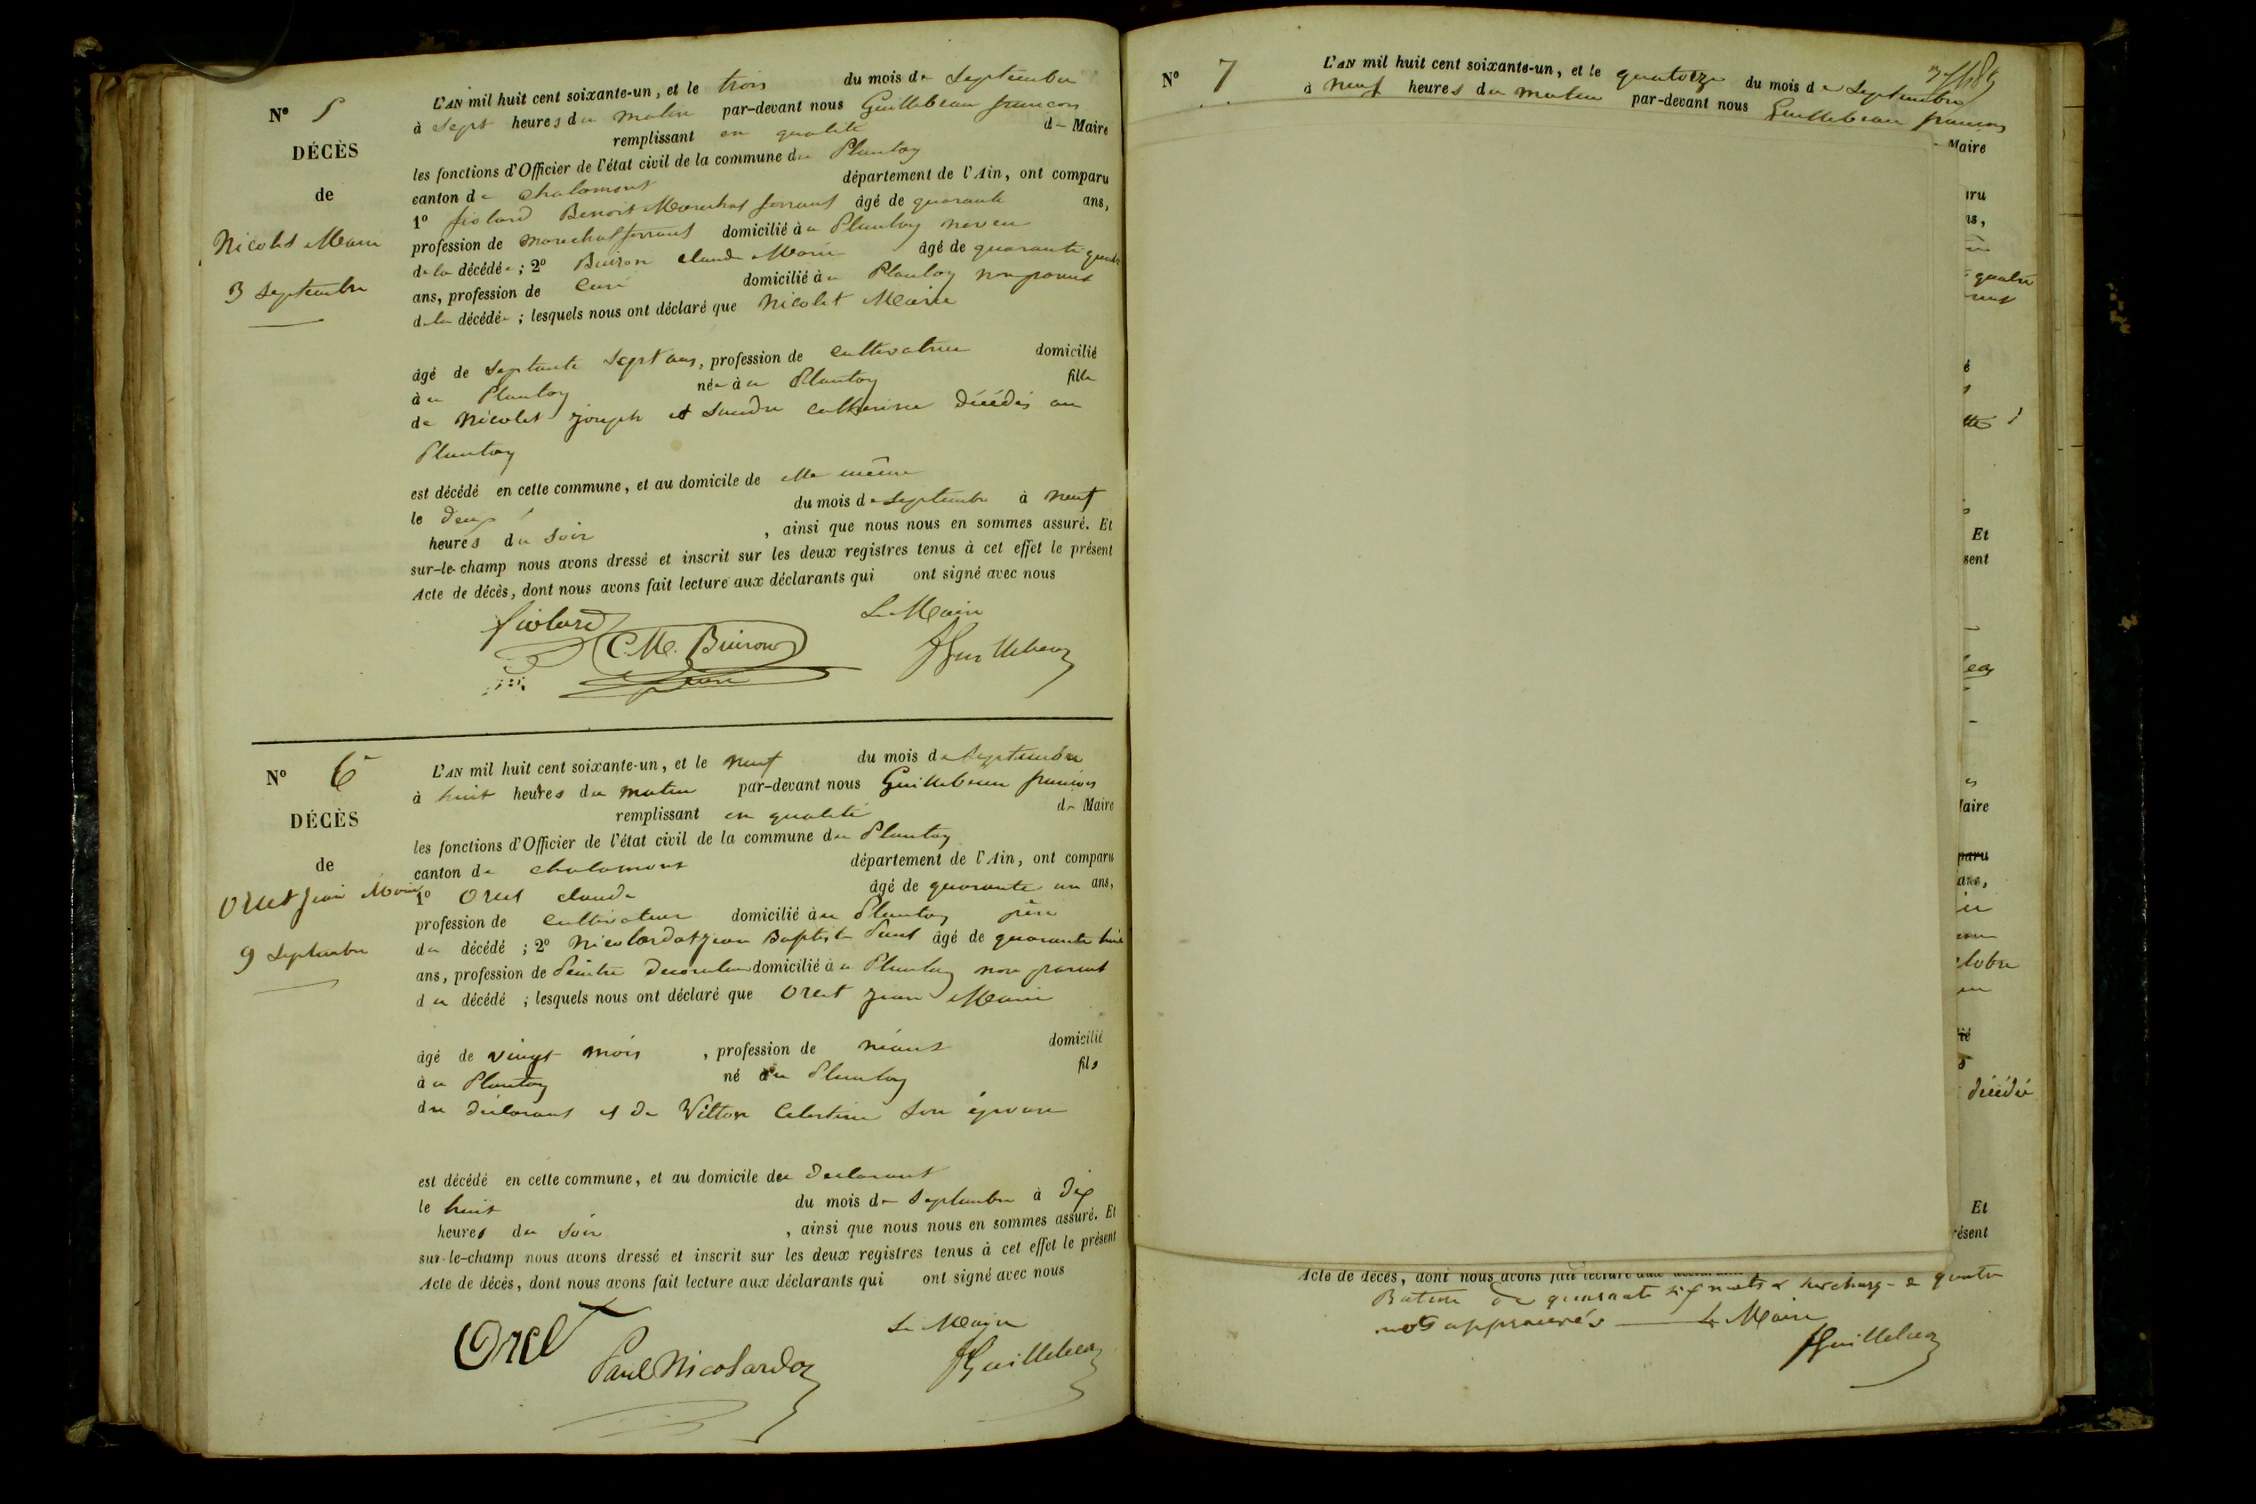 N° 5
DÉCÈS
de
Nicolet Marie
3 Septembre
L'AN mil huit cent soixante-un, et le trois du mois de Septembre
à sept heures du matin par-devant nous Guillebeau francois
remplissant en qualité de Maire
les fonctions d'Officier de l'état civil de la commune du Plantay
canton de Chalamont département de l'Ain, ont comparu
1° fiolard Benoit Marechal ferrant âgé de quarante ans,
profession de marechal ferrant domicilié à u Plantay neveu
de la décédée; 2° Buiron Claude Marie âgé de quarante quatre
ans, profession de Curé domicilié à u Plantay non parent
de la décédée; lesquels nous ont déclaré que Nicolet Marie
âgé de septante sept ans, profession de cultivatrice domicilié
à u Plantay née à u Plantay fille
de Nicolet joseph et Catherine décédés au
Plantay
est décédé en cette commune, et au domicile de elle même
le deux du mois de Septembre à neuf
heures du soir, ainsi que nous nous en sommes assuré. Et
sur-le-champ nous avons dressé et inscrit sur les deux registres tenus à cet effet le présent
Acte de décès, dont nous avons fait lecture aux déclarants qui ont signé avec nous
Le Maire
fiolard
C. M. Buiron
Guillebeau
N° 6
DÉCÈS
de
Oret Jean Marie
9 Septembre
L'AN mil huit cent soixante-un, et le neuf du mois de Septembre
à huit heures du matin par-devant nous Guillebeau francois
remplissant en qualité de Maire
les fonctions d'Officier de l'état civil de la commune du Plantay
canton de Chalamont département de l'Ain, ont comparu
1° Oret claude âgé de quarante un ans,
profession de Cultivateur domicilié à u Plantay père
du décédé; 2° Nicolardot jean Baptiste Paul âgé de quarante huit
ans, profession de Peintre Decorateur domicilié à u Plantay non parent
du décédé; lesquels nous ont déclaré que Oret jean Marie
âgé de vingt mois, profession de néant domicilié
à u Plantay né au Plantay fils
du déclarant et de Celestine son épouse
est décédé en cette commune, et au domicile du declarant
le huit du mois de Septembre à dix
heures du soir, ainsi que nous nous en sommes assuré. Et
sur-le-champ nous avons dressé et inscrit sur les deux registres tenus à cet effet le présent
Acte de décès, dont nous avons fait lecture aux déclarants qui ont signé avec nous
Le Maire
Oret
Paul Nicolardot
Guillebeau
N° 7
L'AN mil huit cent soixante-un, et le quatorze du mois de Septembre
à neuf heures du matin par-devant nous Guillebeau francois
Maire
quatre
Et
sent
Maire
paru
ans,
décédé
Et
résent
Acte de décès, dont nous avons fait lecture aux
de quarante mots & surcharge de quatre
mots approuvés Le Maire
Guillebeau